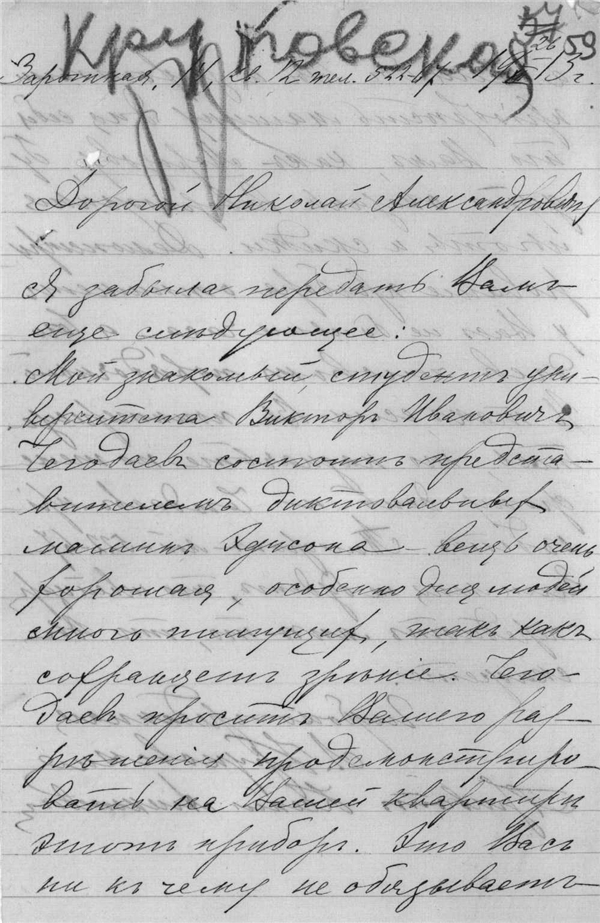 Крутовская
59
Заротная, 14, кв. 12 тел. 522-07 1915 г.
Дорогой Николай Александровичъ
Я забыла передать Вамъ
еще слѣдующее:
Мой знакомый, студентъ уни-
верситета Викторъ Ивановичъ
Чегодаевъ состоитъ предста-
вителемъ диктовальныхъ
машинъ Эдисона – вещь очень
хорошая, особенно для людей
много пишущихъ, такъ какъ
сохраняетъ зрѣніе. Чего-
даевъ проситъ Вашего раз-
рѣшенія продемонстриро-
вать на Вашей квартирѣ
этотъ приборъ. Это Васъ
ни къ чему не обязываетъ